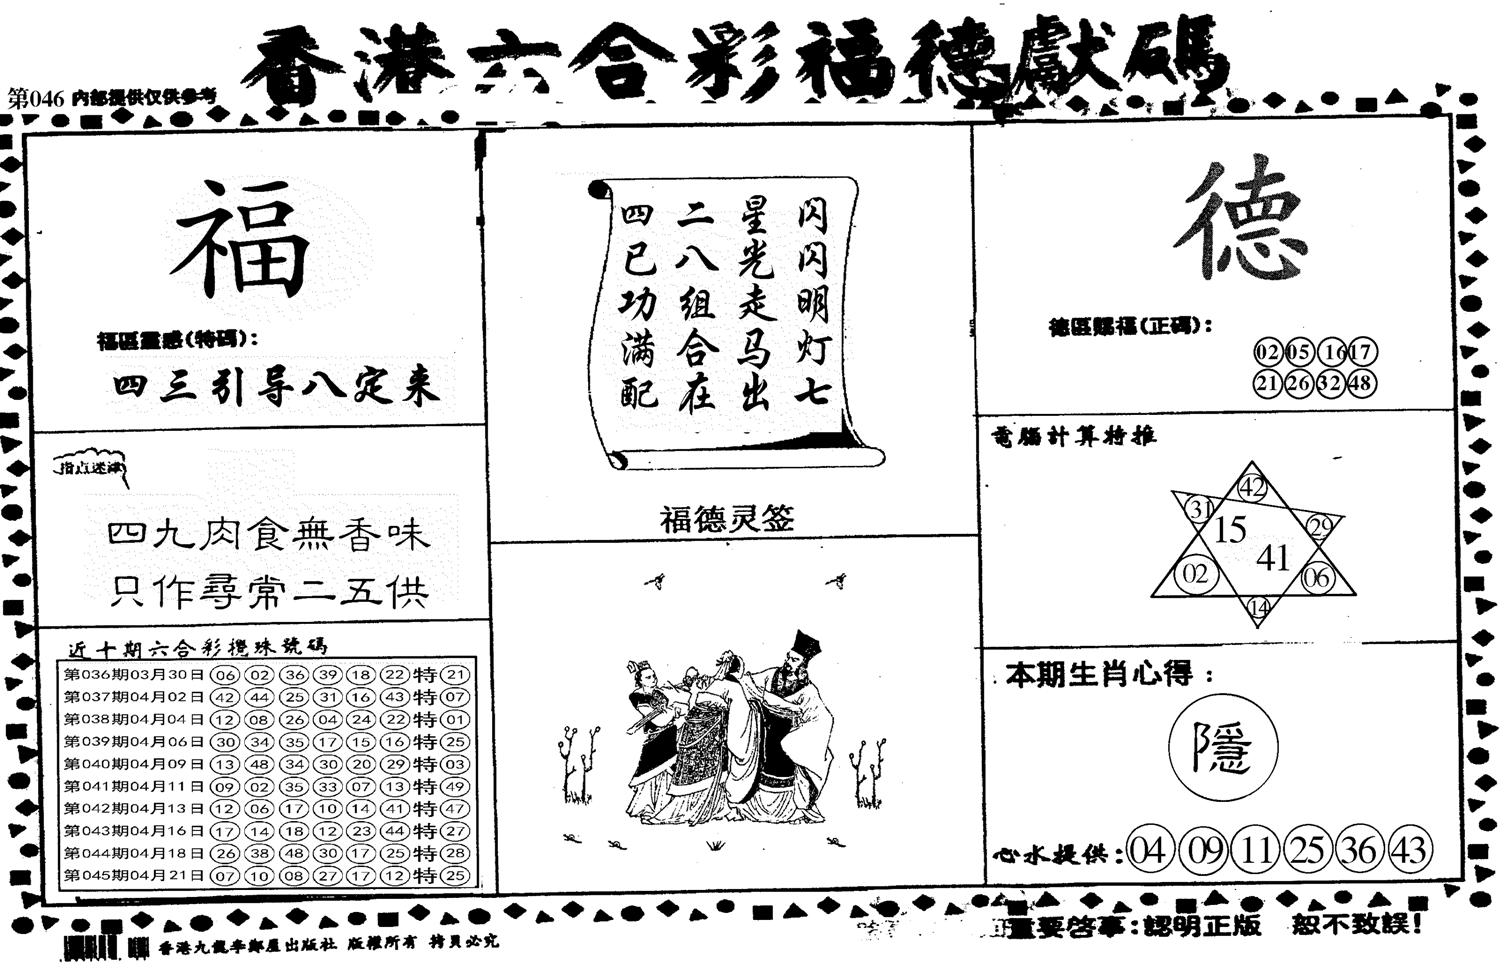 香港六合彩福德獻碼
第046 内部提供仅供参考
福
福區靈感(特碼):
四三引导八定来
指点迷津
四九肉食無香味
只作尋常二五供
近十期六合彩攪珠號碼
第036期03月30日 06 02 36 39 18 22 特 21
第037期04月02日 42 44 25 31 16 43 特 07
第038期04月04日 12 08 26 04 24 22 特 01
第039期04月06日 30 34 35 17 15 16 特 25
第040期04月09日 13 48 34 30 20 29 特 03
第041期04月11日 09 02 35 33 07 13 特 49
第042期04月13日 12 06 17 10 14 41 特 47
第043期04月16日 17 14 18 12 23 44 特 27
第044期04月18日 26 38 48 30 17 25 特 28
第045期04月21日 07 10 08 27 17 12 特 25
闪闪明灯七
星光走马出
二八组合在
四已功满配
福德灵签
德
德區賜福(正碼):
02 05 16 17
21 26 32 48
電腦計算特推
42
31 29
15
41
02 06
14
本期生肖心得:
隱
心水提供: 04 09 11 25 36 43
重要啓事:認明正版 恕不致誤!
香港九龍李鄭屋出版社 版權所有 拷貝必究